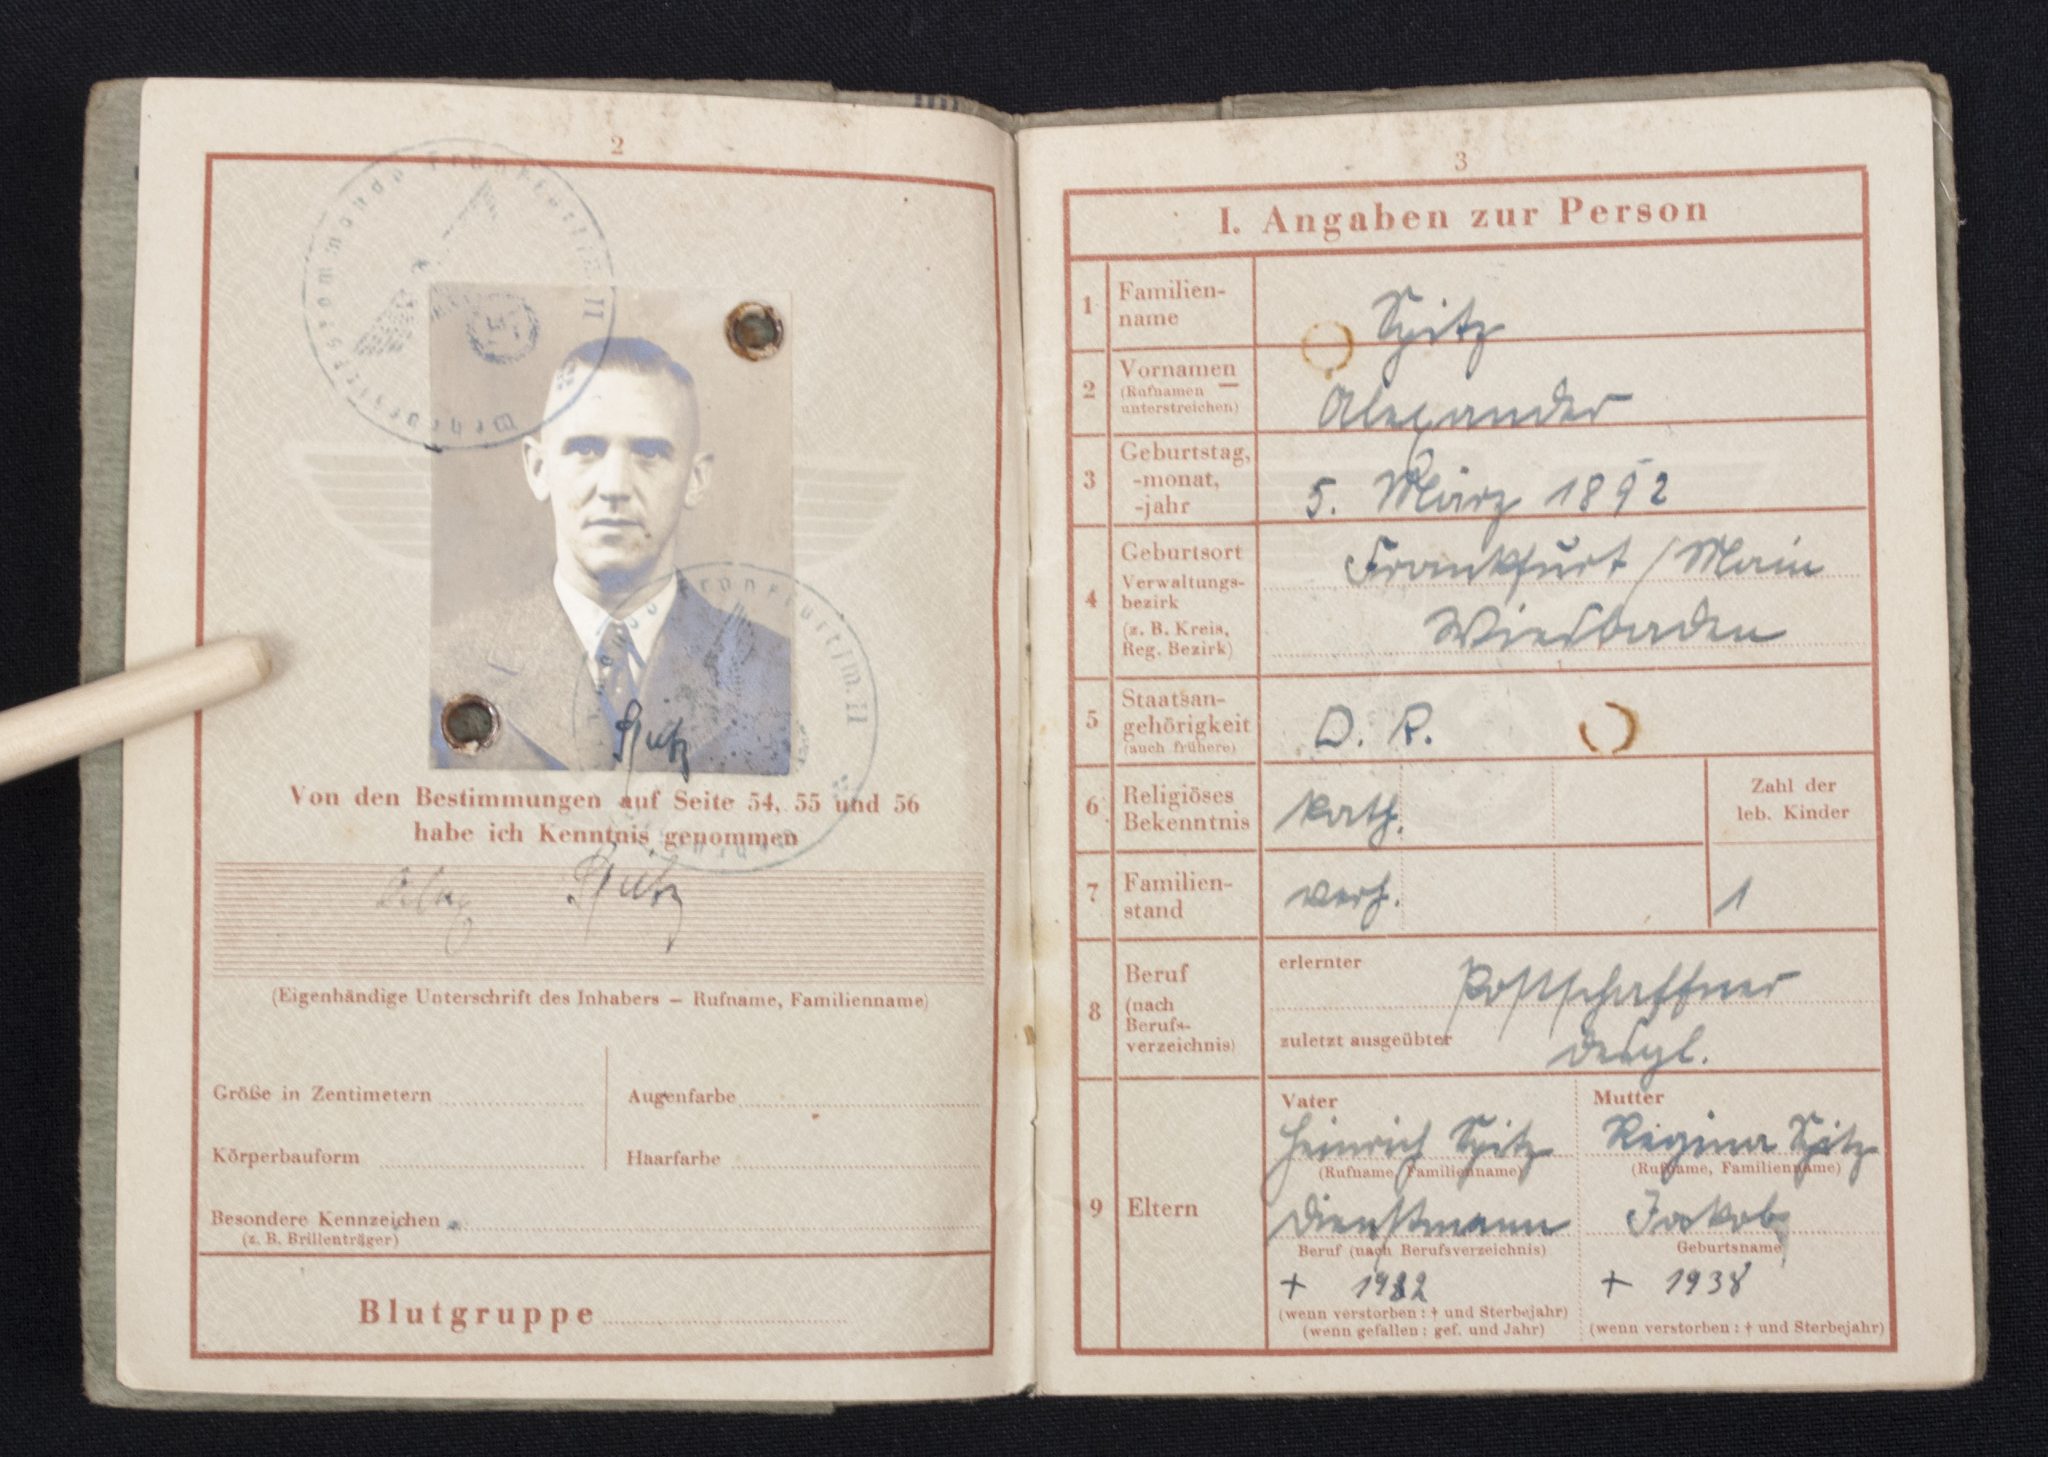 2
Wehrbezirkskommando Frankfurt/M. II
Spitz
Frankfurt/M. II
Von den Bestimmungen auf Seite 54, 55 und 56
habe ich Kenntnis genommen
Spitz
(Eigenhändige Unterschrift des Inhabers – Rufname, Familienname)
Größe in Zentimetern
Augenfarbe
Körperbauform
Haarfarbe
Besondere Kennzeichen
(z. B. Brillenträger)
Blutgruppe
3
I. Angaben zur Person
1 Familien-
name
Spitz
2 Vornamen
(Rufnamen
unterstreichen)
Alexander
3 Geburtstag,
-monat,
-jahr
5. März 1892
4 Geburtsort
Verwaltungs-
bezirk
(z. B. Kreis,
Reg. Bezirk)
Frankfurt/Main
Wiesbaden
5 Staatsan-
gehörigkeit
(auch frühere)
D. R.
6 Religiöses
Bekenntnis
kath.
Zahl der
leb. Kinder
7 Familien-
stand
verh.
1
8 Beruf
(nach
Berufs-
verzeichnis)
erlernter
Postschaffner
zuletzt ausgeübter
desgl.
9 Eltern
Vater
Heinrich Spitz
(Rufname, Familienname)
Dienstmann
Beruf (nach Berufsverzeichnis)
+
(wenn verstorben: † und Sterbejahr)
(wenn gefallen: gef. und Jahr)
Mutter
Regina Spitz
(Rufname, Familienname)
Jakob
Geburtsname
+ 1938
(wenn verstorben: † und Sterbejahr)